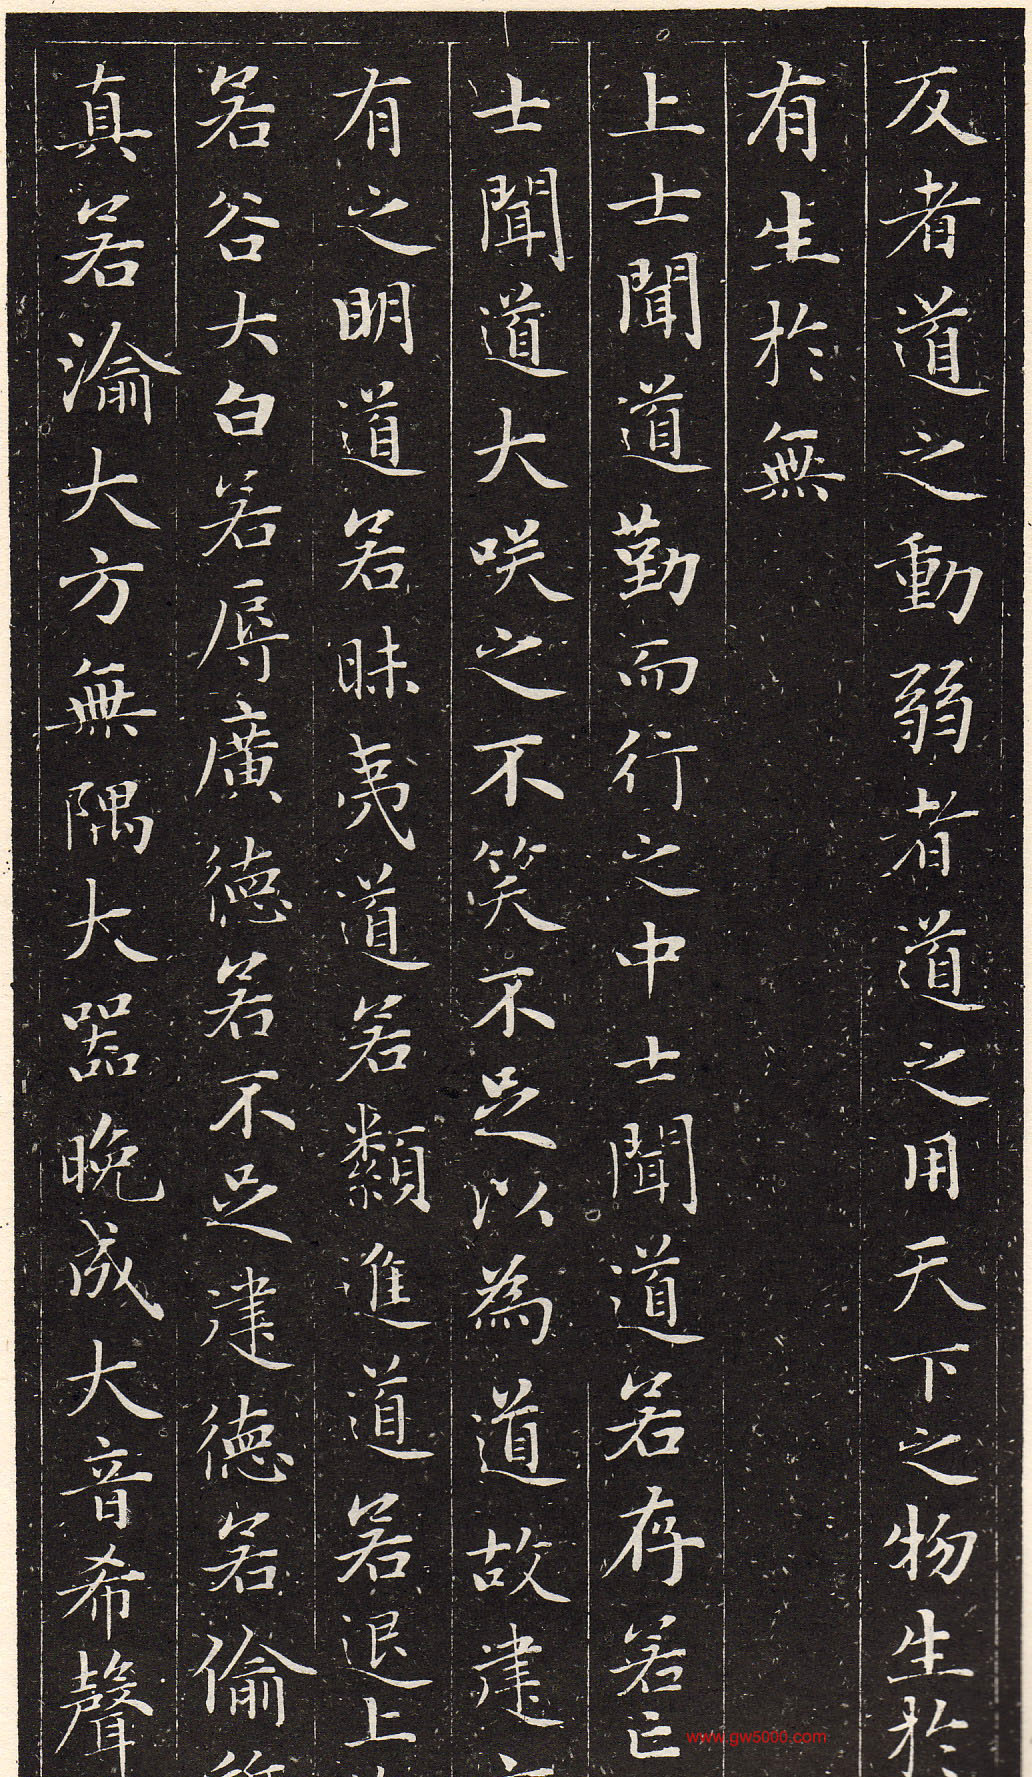 反者道之動弱者道之用天下之物生於
有生於無
上士聞道勤而行之中士聞道若存若亡
士聞道大咲之不笑不足以為道故建
有之明道若昧夷道若類進道若退上
若谷大白若辱廣德若不足建德若偷
真若渝大方無隅大器晚成大音希聲
www.gw5000.com